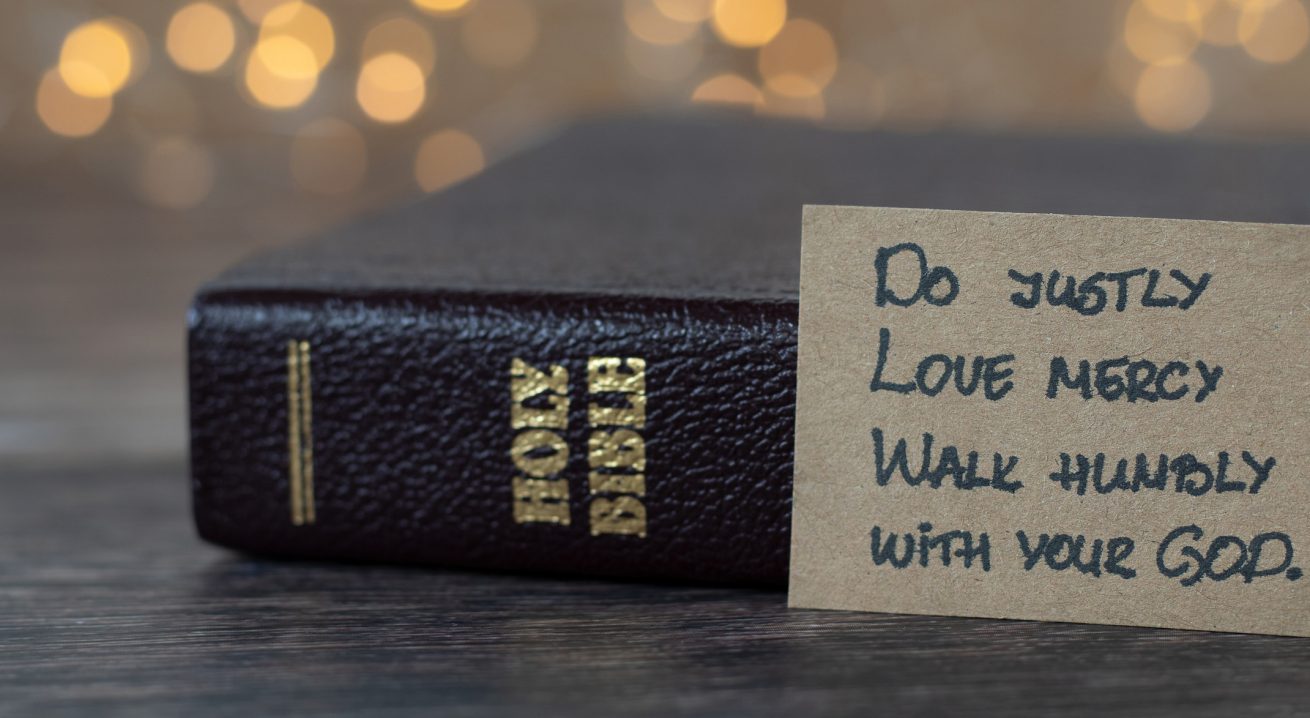 HOLY
BIBLE
DO JUSTLY
LOVE MERCY
WALK HUMBLY
WITH YOUR GOD.